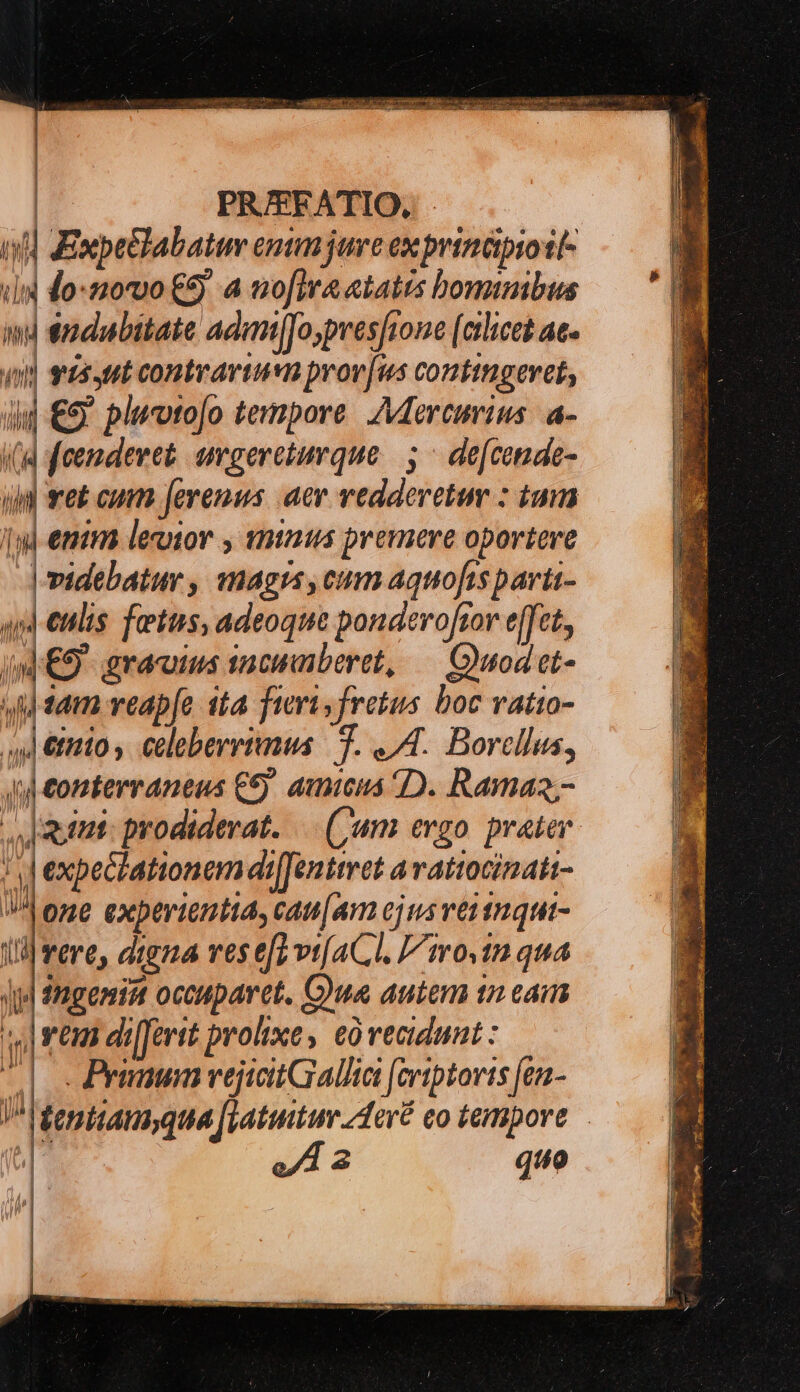 PRÆFATIO.
Expectabatur enim jure ex principio il-
lo novo & a nostræ ætatis hominibus
indubitate admisso, pressione scilicet ae-
ris, ut contrarium prorsus contingeret,
& pluvioso tempore Mercurius a-
scenderet urgereturque ; descende-
ret cum serenus aer redderetur : tum
enim levior , minus premere oportere
videbatur , magis, cum aquosis parti-
culis fœtus, adeoque ponderosior esset,
& gravius incumberet, Quod et-
iam reapse ita fieri, fretus hoc ratio-
cinio , celeberrimus J. A. Borellus,
conterraneus & amicus D. Ramaz-
zini prodiderat. Cum ergo præter
expectationem dissentiret a ratiocinati-
one experientia, causam ejus rei inqui-
rere, digna res est visa Cl. Viro, in qua
ingeniū occuparet. Quæ autem in eam
rem disserit prolixe , eò recidunt :
Primum rejicit Gallici scriptoris sen-
tentiam, qua statuitur Aerē eo tempore
A 2 quo